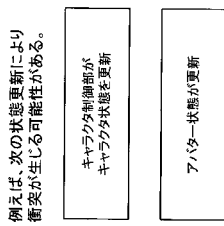 例えば、次の状態更新により
衝突が生じる可能性がある。
キャラクタ制御部が
キャラクタ状態を更新
アバター状態が更新